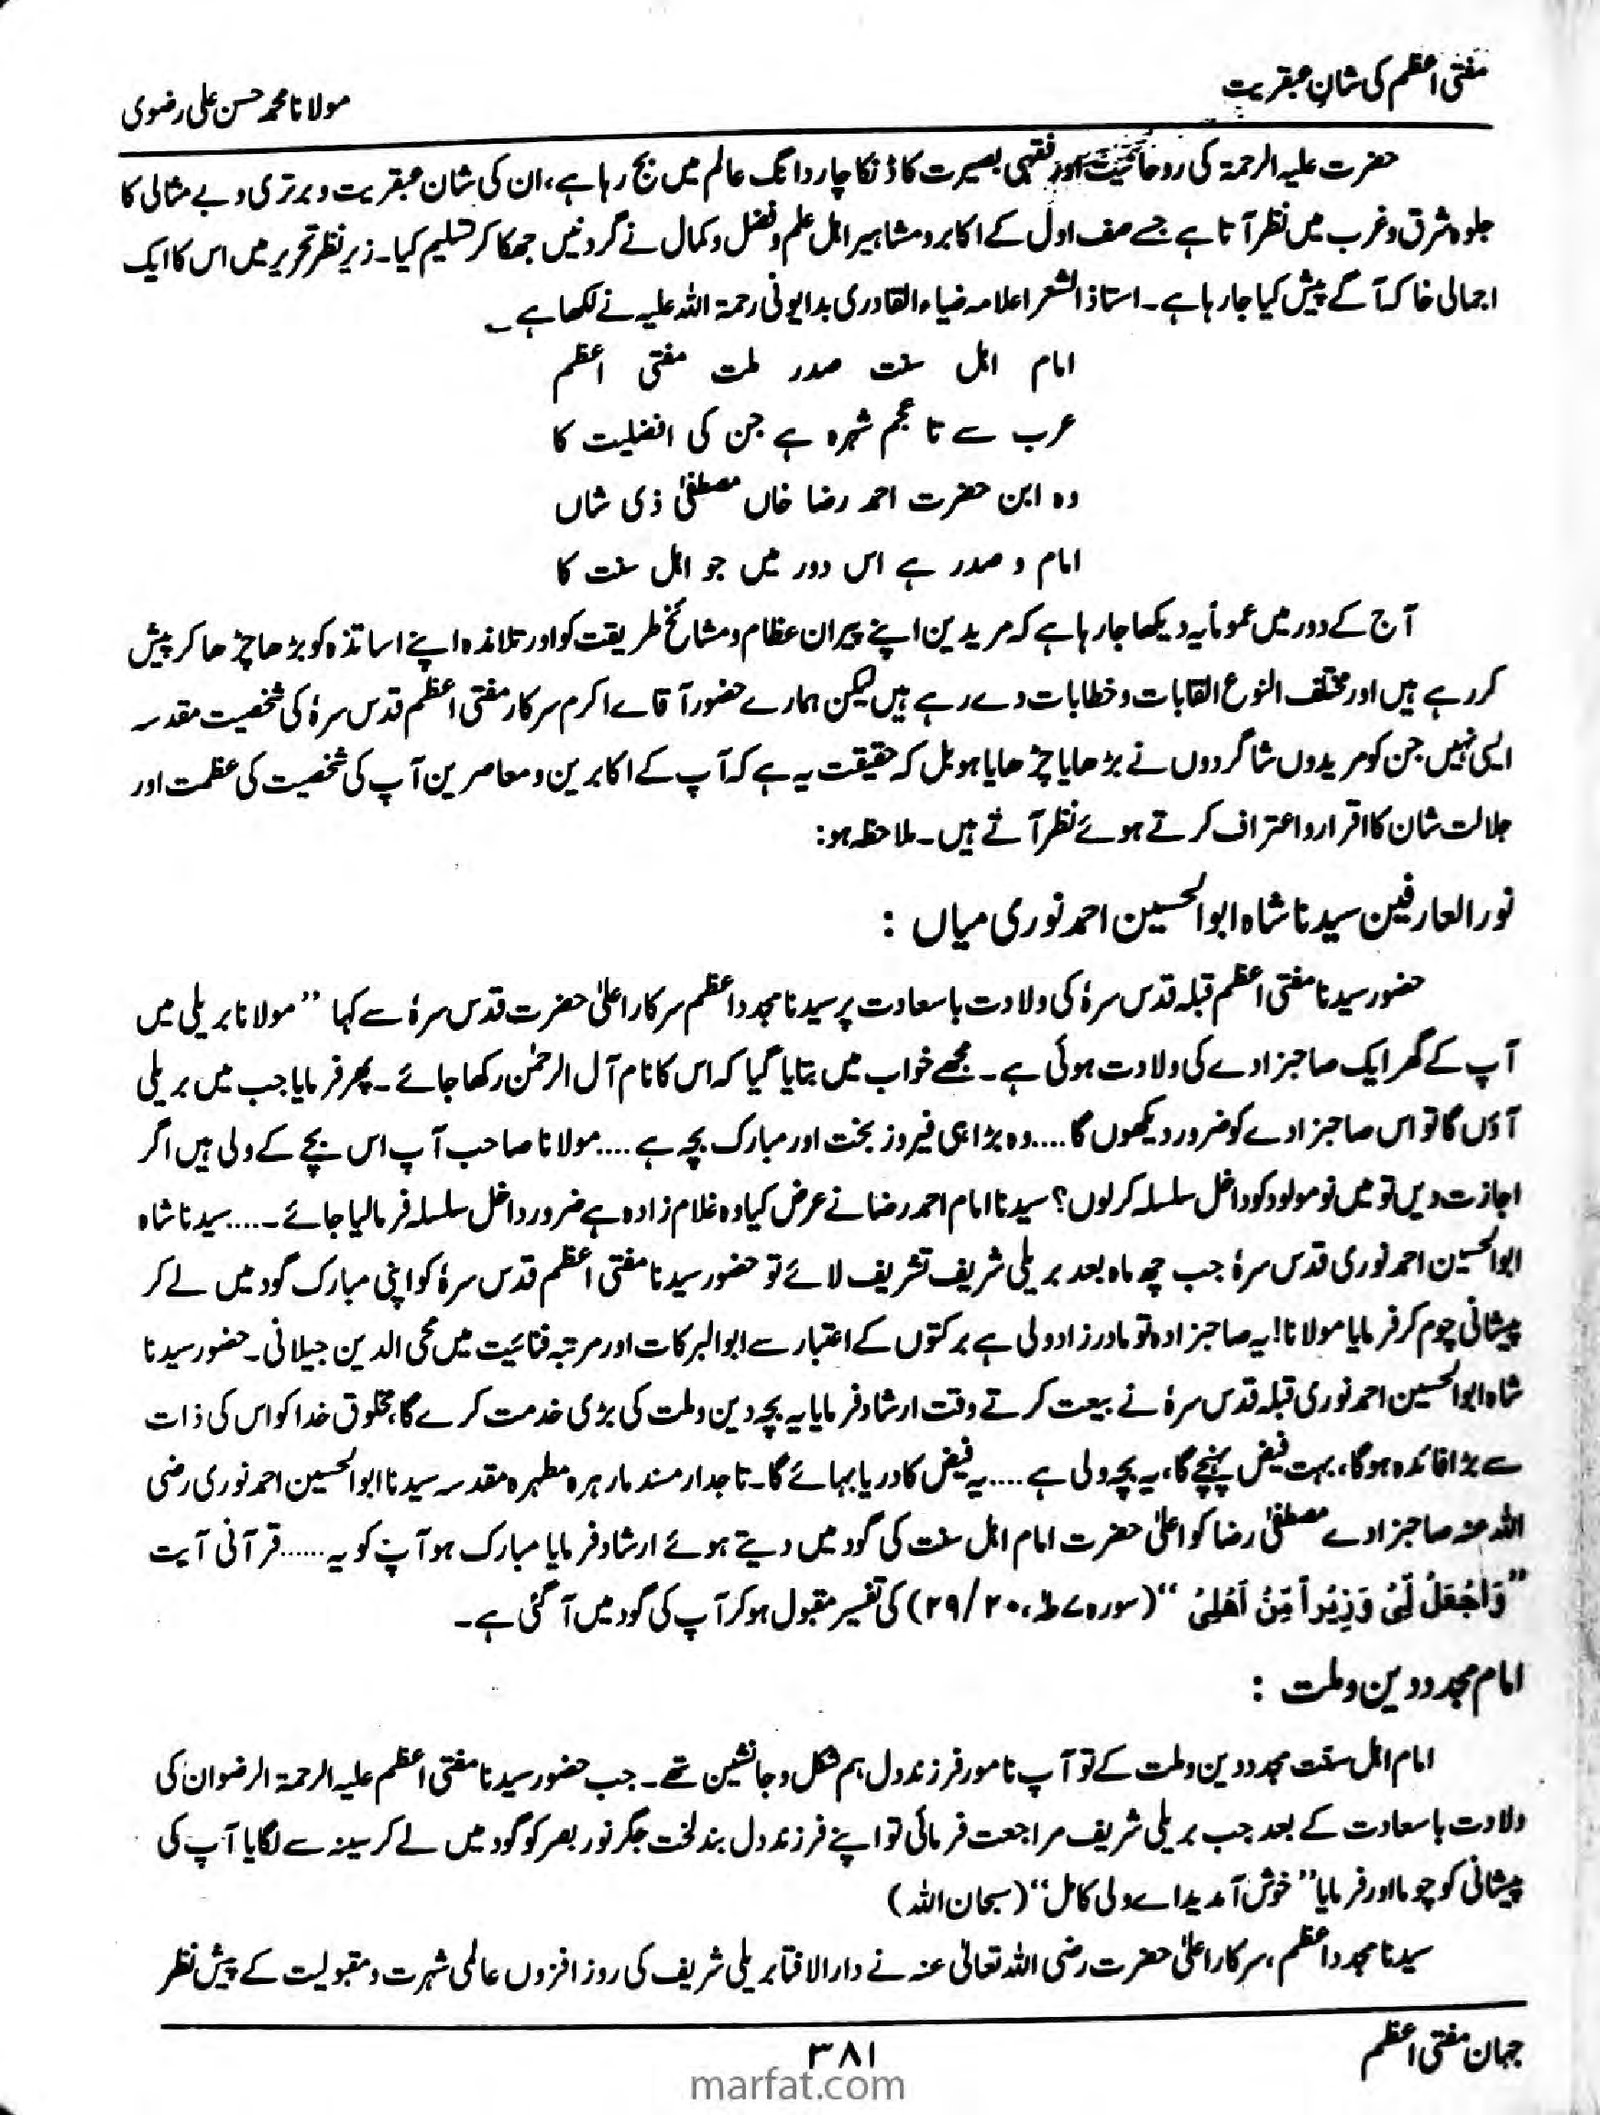 مفتی اعظم کی شانِ عبقریت
مولانا محمد حسن علی رضوی
حضرت علیہ الرحمۃ کی روحانیت اور فقہی بصیرت کا ڈنکا چار دانگ عالم میں بج رہا ہے، ان کی شان عبقریت و برتری و بے مثالی کا
جلوہ شرق و غرب میں نظر آتا ہے جسے صف اول کے اکابر و مشاہیر اہل علم و فضل و کمال نے گردنیں جھکا کر تسلیم کیا۔ زیر نظر تحریر میں اس کا ایک
اجمالی خاکہ آگے پیش کیا جا رہا ہے۔ استاذ الشعرا علامہ ضیاء القادری بدایونی رحمۃ اللہ علیہ نے لکھا ہے ؎
امام اہل سنت صدر ملت مفتی اعظم
عرب سے تا عجم شہرہ ہے جن کی افضلیت کا
وہ ابن حضرت احمد رضا خاں مصطفیٰ ذی شاں
امام و صدر ہے اس دور میں جو اہل سنت کا
آج کے دور میں عموماً یہ دیکھا جا رہا ہے کہ مریدین اپنے پیران عظام و مشائخ طریقت کو اور تلامذہ اپنے اساتذہ کو بڑھا چڑھا کر پیش
کر رہے ہیں اور مختلف النوع القابات و خطابات دے رہے ہیں لیکن ہمارے حضور آقاے اکرم سرکار مفتی اعظم قدس سرہٗ کی شخصیت مقدسہ
ایسی نہیں جن کو مریدوں شاگردوں نے بڑھایا چڑھایا ہو بل کہ حقیقت یہ ہے کہ آپ کے اکابرین و معاصرین آپ کی شخصیت کی عظمت اور
جلالت شان کا اقرار و اعتراف کرتے ہوئے نظر آتے ہیں۔ ملاحظہ ہو:
نور العارفین سیدنا شاہ ابوالحسین احمد نوری میاں :
حضور سیدنا مفتی اعظم قبلہ قدس سرہٗ کی ولادت باسعادت پر سیدنا مجدد اعظم سرکار اعلیٰ حضرت قدس سرہٗ سے کہا ”مولانا بریلی میں
آپ کے گھر ایک صاحبزادے کی ولادت ہوئی ہے۔ مجھے خواب میں بتایا گیا کہ اس کا نام آل الرحمٰن رکھا جائے۔ پھر فرمایا جب میں بریلی
آؤں گا تو اس صاحبزادے کو ضرور دیکھوں گا....وہ بڑا ہی فیروز بخت اور مبارک بچہ ہے....مولانا صاحب آپ اس بچے کے ولی ہیں اگر
اجازت دیں تو میں نومولود کو داخل سلسلہ کر لوں؟ سیدنا امام احمد رضا نے عرض کیا وہ غلام زادہ ہے ضرور داخل سلسلہ فرما لیا جائے۔....سیدنا شاہ
ابوالحسین احمد نوری قدس سرہٗ جب چھ ماہ بعد بریلی شریف تشریف لائے تو حضور سیدنا مفتی اعظم قدس سرہٗ کو اپنی مبارک گود میں لے کر
پیشانی چوم کر فرمایا مولانا! یہ صاحبزادہ تو مادرزاد ولی ہے برکتوں کے اعتبار سے ابوالبرکات اور مرتبہ فنائیت میں محی الدین جیلانی۔ حضور سیدنا
شاہ ابوالحسین احمد نوری قبلہ قدس سرہٗ نے بیعت کرتے وقت ارشاد فرمایا یہ بچہ دین و ملت کی بڑی خدمت کرے گا، مخلوق خدا کو اس کی ذات
سے بڑا فائدہ ہو گا، بہت فیض پہنچے گا، یہ بچہ ولی ہے....یہ فیض کا دریا بہائے گا۔ تاجدار مسند مارہرہ مطہرہ مقدسہ سیدنا ابوالحسین احمد نوری رضی
اللہ عنہ صاحبزادے مصطفیٰ رضا کو اعلیٰ حضرت امام اہل سنت کی گود میں دیتے ہوئے ارشاد فرمایا مبارک ہو آپ کو یہ......قرآنی آیت
”وَاجْعَلْ لِّیْ وَزِیْراً مِّنْ اَھْلِیْ“ (سورہ ے طٰہٰ، ۲۰/۲۹) کی تفسیر مقبول ہو کر آپ کی گود میں آ گئی ہے۔
امام مجدد دین و ملت :
امام اہل سنت مجدد دین و ملت کے تو آپ نامور فرزند دل ہم شکل و جانشین تھے۔ جب حضور سیدنا مفتی اعظم علیہ الرحمۃ الرضوان کی
ولادت باسعادت کے بعد جب بریلی شریف مراجعت فرمائی تو اپنے فرزند دل بند لخت جگر نور بصر کو گود میں لے کر سینہ سے لگایا آپ کی
پیشانی کو چوما اور فرمایا ”خوش آمدید اے ولی کامل“ (سبحان اللہ)
سیدنا مجدد اعظم، سرکار اعلیٰ حضرت رضی اللہ تعالیٰ عنہ نے دارالافتا بریلی شریف کی روز افزوں عالمی شہرت و مقبولیت کے پیش نظر
جہان مفتی اعظم
۳۸۱
marfat.com